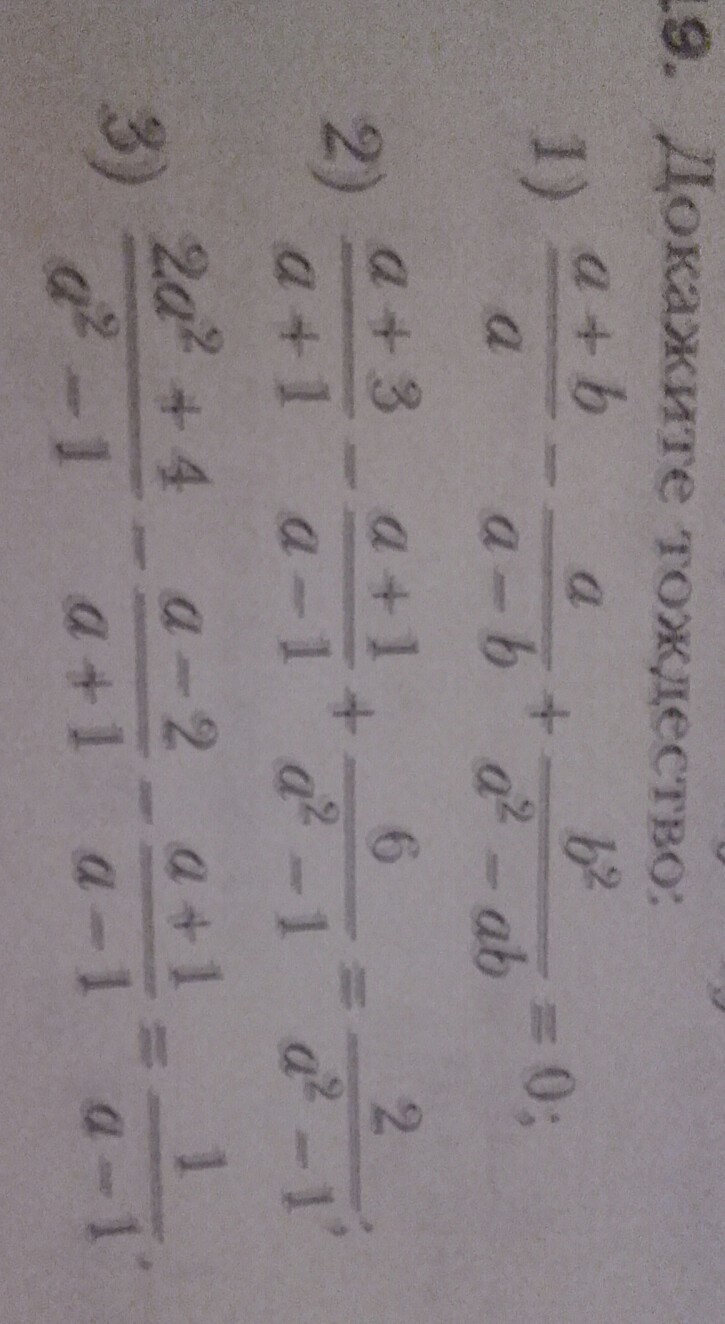 19. Докажите тождество:
1) \frac{a+b}{a} - \frac{a}{a-b} + \frac{b^2}{a^2-ab} = 0;
2) \frac{a+3}{a+1} - \frac{a+1}{a-1} + \frac{6}{a^2-1} = \frac{2}{a^2-1};
3) \frac{2a^2+4}{a^2-1} - \frac{a-2}{a+1} - \frac{a+1}{a-1} = \frac{1}{a-1}.